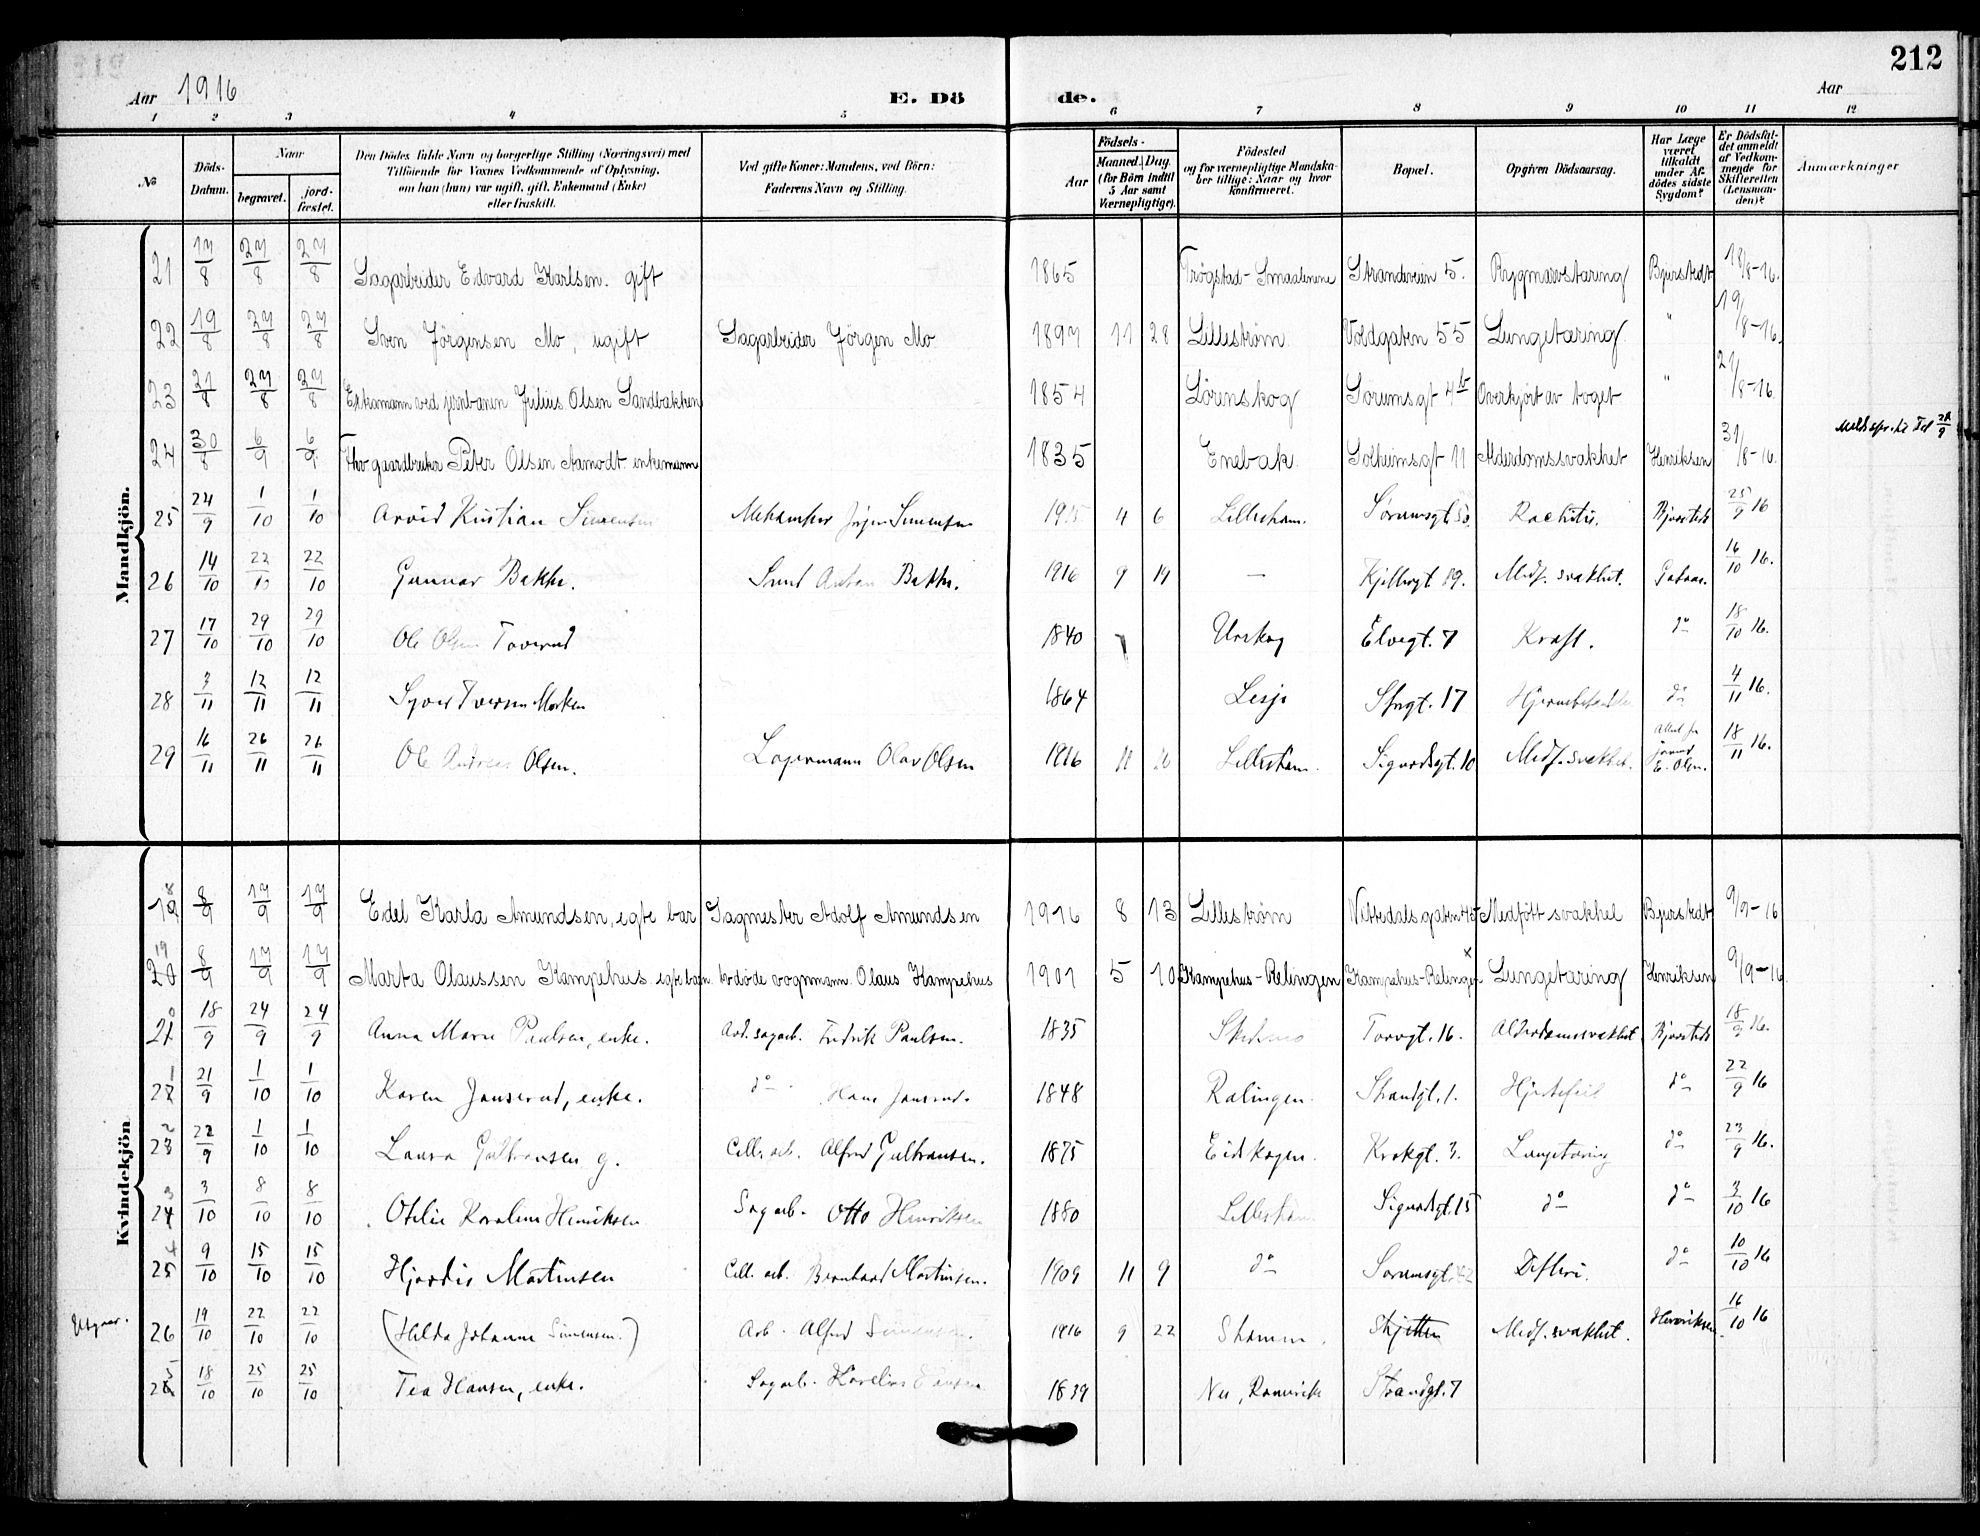 212
Aar 1916 E. Dö de. Aar
1 2 3 4 5 6 7 8 9 10 11 12
No
Döds-Datum.
Naar
begravet.
jord-fæstet.
Den Dödes fulde Navn og borgerlige Stilling (Næringsvei) med
Tilföiende for Voxnes Vedkommende af Oplysning,
om han (hun) var ugift, gift, Enkemand (Enke)
eller fraskilt.
Ved gifte Koner: Mandens, ved Börn:
Faderens Navn og Stilling.
Aar
Födsels-
Maaned. Dag.
(for Börn indtil
5 Aar samt
Værnepligtige).
Födested
og for værnepligtige Mandska-
ber tillige: Naar og hvor
konfirmeret.
Bopæl.
Opgiven Dödsaarsag.
Har Læge
været
tilkaldt
under Af-
dödes sidste
Sygdom?
Er Dödsfal-
det anmeldt
af Vedkom-
mende for
Skifteretten
(Lensman-
den)?
Anmærkninger
Mandkjön.
21 17/8 27/8 27/8 Sagarbeider Edvard Karlsen. gift 1865 Trögstad-Smaalenene Strandveien 5. Rygmarvstæring Bjerstedt 18/8-16.
22 19/8 27/8 27/8 Sven Jörgensen Mo, ugift Sagarbeider Jörgen Mo 1897 11 28 Lilleström Voldgaten 55 Lungetæring " 19/8-16.
23 21/8 27/8 27/8 ved jernbanen Julius Olsen Sandbakken 1854 Lörenskog Sorumsgt 4b Overkjört av toget " 21/8-16.
24 30/8 6/9 6/9 Fhv gaardbruker Peter Olsen Aamodt enkemann 1835 Enebak Solheimsgt 11 Alderdomssvakhet Henriksen 31/8-16.
25 24/9 1/10 1/10 Arvid Kristian Simensen Mekaniker Simensen 1915 4 6 Lilleström. Sörumsgt. Rachitis. Bjerstedt 25/9 16
26 14/10 22/10 22/10 Gunnar Bakke. Smed Anton Bakke. 1916 9 19 — Kjellergt 19. Medf. svakhet. 16/10 16.
27 17/10 29/10 29/10 Ole Olsen Toverud 1840 Urskog Elvegt. 7 Kræft. do 18/10 16.
28 3/11 12/11 12/11 Syver Iversen Morken 1864 Lesje 17 do 4/11 16.
29 16/11 26/11 26/11 Ole Andreas Olsen. Lagermann Olav Olsen 1916 11 Lilleström. Sigurdsgt. 10 Medf. svakhet. E. Olsen. 18/11 16.
Kvindekjön
18 8/9 17/9 17/9 Edel Karla Amundsen, egte bar Sagmester Adolf Amundsen 1916 8 13 Lilleström Nittedalsgaten Medfött svakhet Bjerstedt 9/9-16
19 8/9 17/9 17/9 Marta Olaussen Kampehus egte barn. avdöde vognmann Olaus Kampehus 1901 5 10 Kampehus-Relingen Kampehus-Relingen x Lungetæring Henriksen 9/9-16
20 18/9 24/9 24/9 Anna Marie Paulsen, enke. Avd. sagarb. Fredrik Paulsen. 1835 Skedsmo Torvgt. 16. Alderdomssvakhet Bjerstedt 18/9 16.
21 21/9 1/10 1/10 Karen Jonserud, enke. do Hans Jonserud. 1848 Rælingen. Strandgt. 1. Hjertefeil do 22/9 16
22 22/9 1/10 1/10 Laura Gulbransen g. Cell. arb. Alfred Gulbransen. 1875 Eidskogen. Krokgt. 3. Lungetæring do 23/9 16.
23 3/10 8/10 8/10 Otilie Karoline Henriksen Sagarb. Otto Henriksen 1880 Lilleström Sigurdsgt. 15 do do 3/10 16
24 9/10 15/10 15/10 Hjördis Martinsen Cell. arb. Bernhard Martinsen. 1909 11 9 do Sörumsgt. Difteri. do 10/10 16
Utgaar. 26 19/10 22/10 22/10 (Hilda Johanne Simensen.) Arb. Alfred Simensen. 1916 9 22 Strömmen. Skjetten Medf. svakhet. Henriksen. 16/10 16
25 18/10 25/10 25/10 Tea Hansen, enke. Sagarb. Karelius Hansen 1839 Nes, Romerike Strandgt. 7